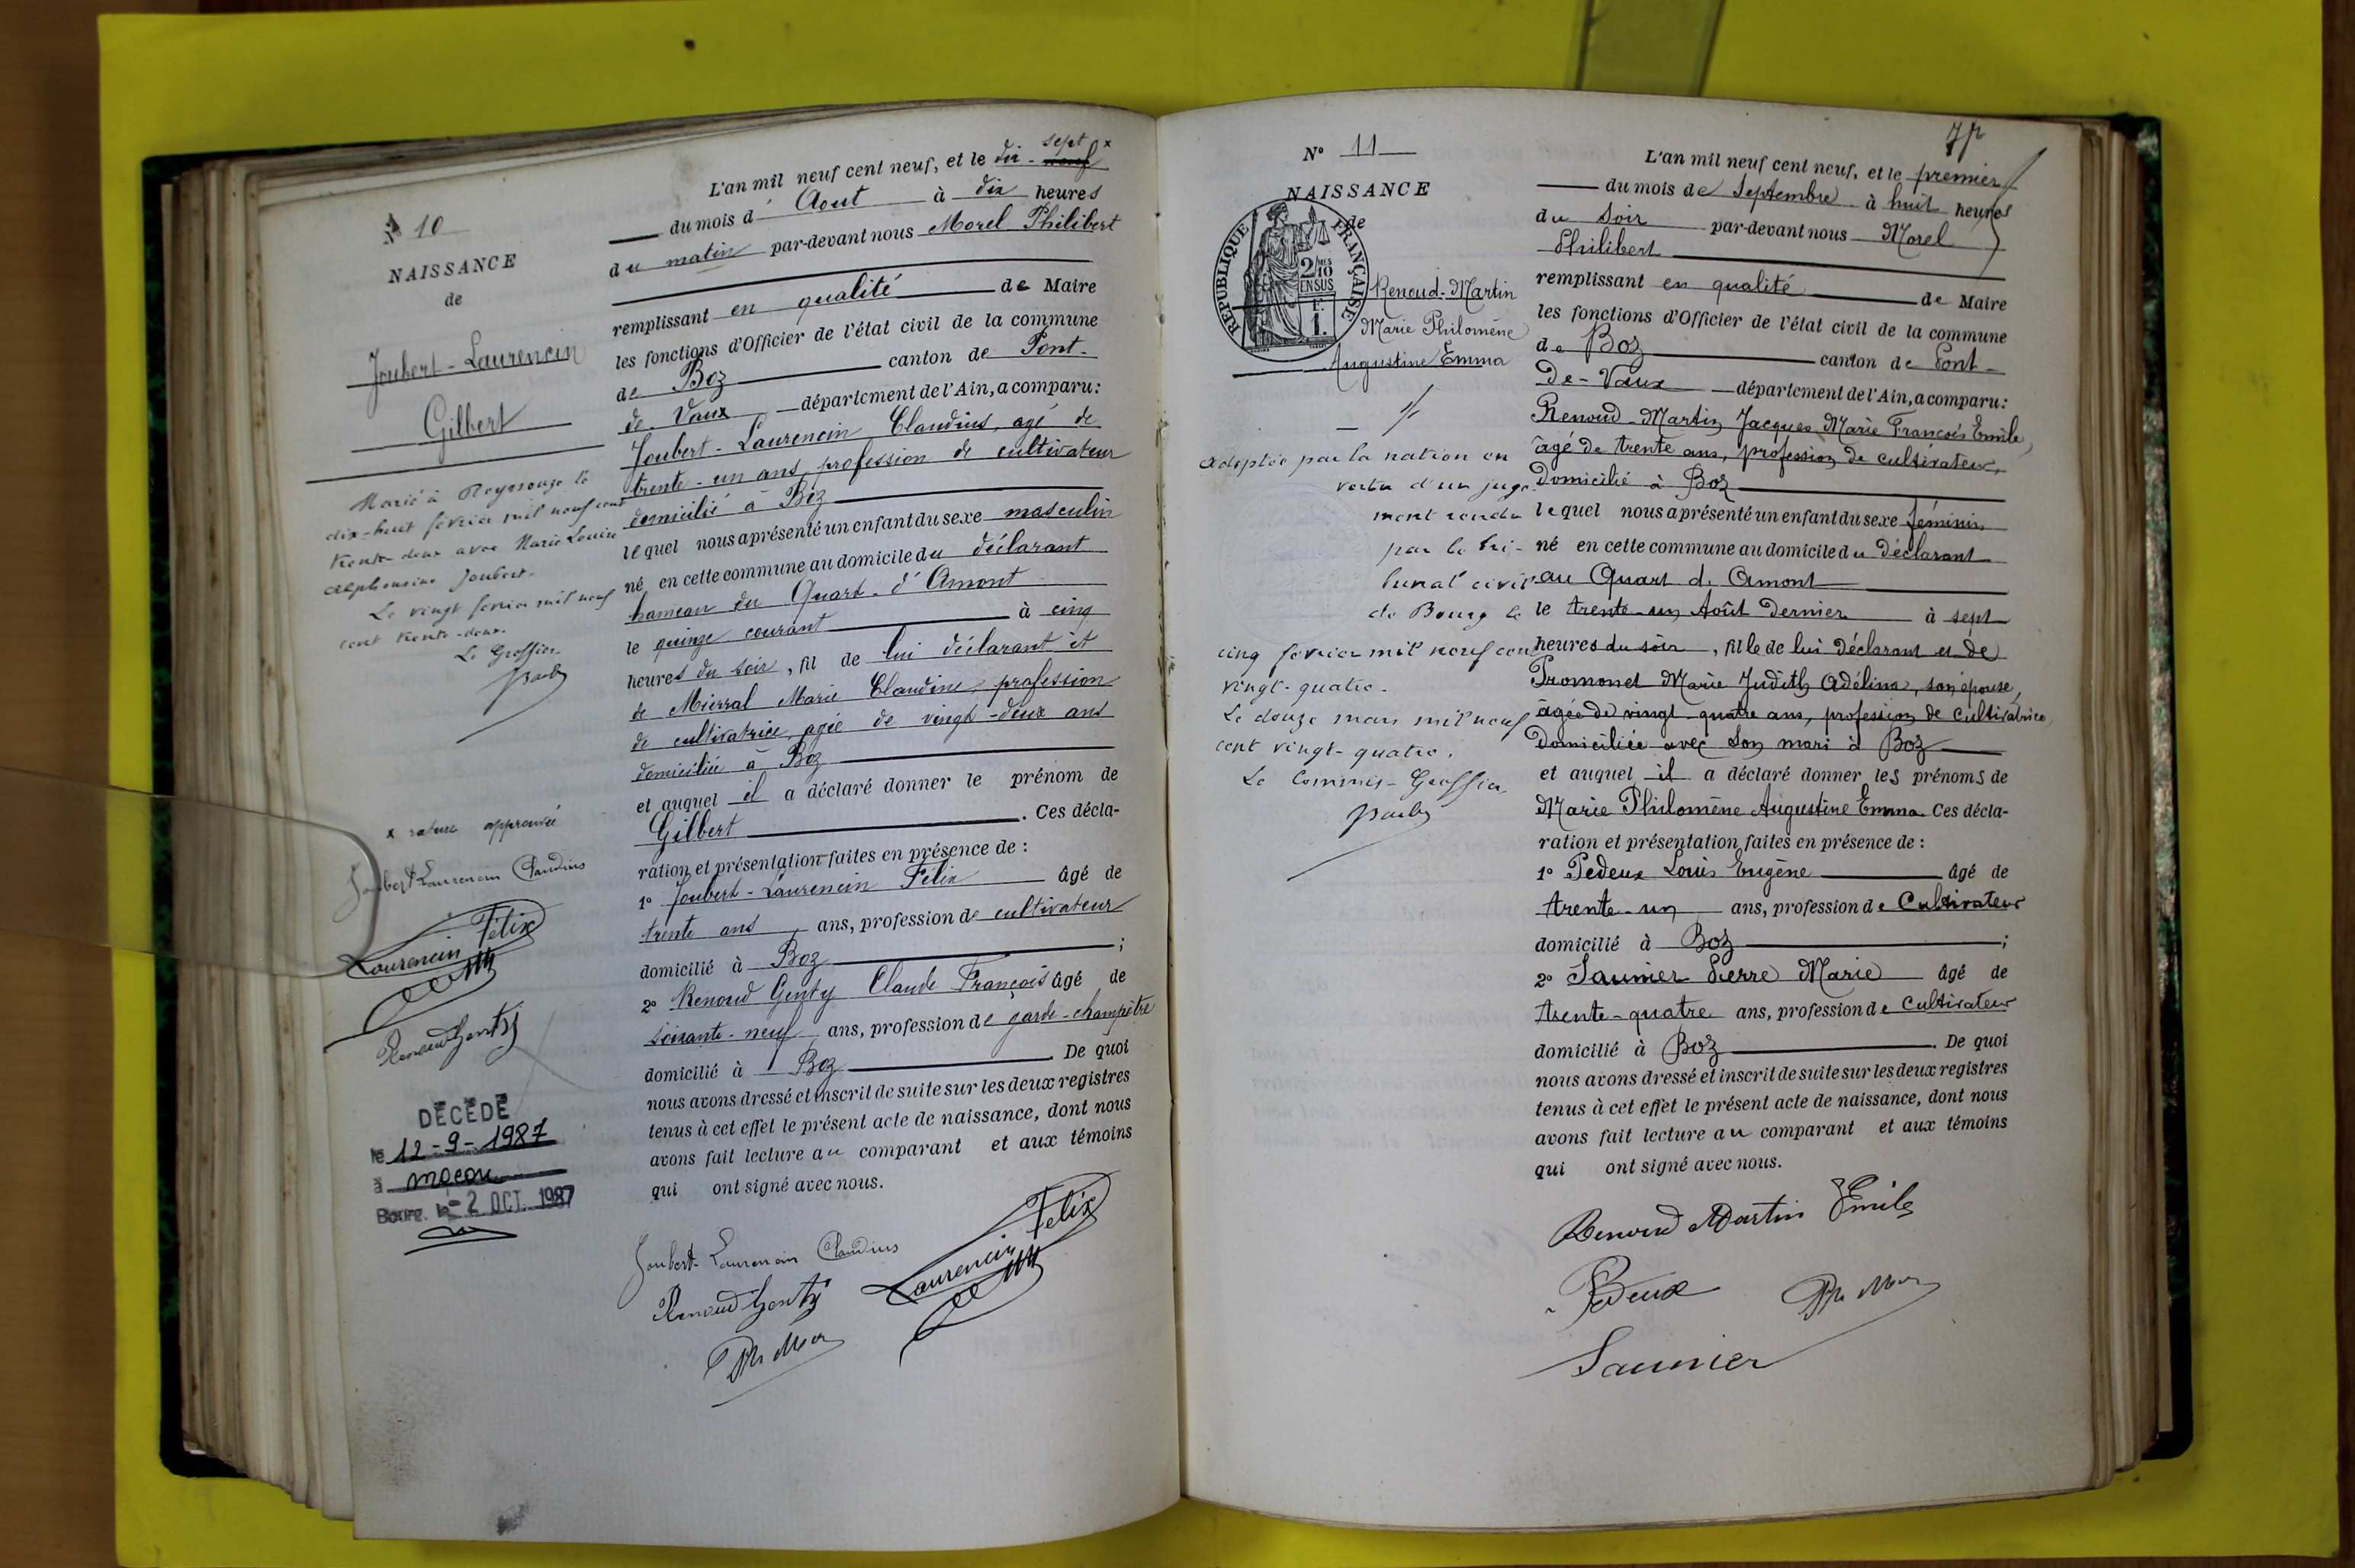 N° 10
NAISSANCE
de
Joubert-Laurencin
Gilbert
Marié à Reyssouze le
dix-huit février mil neuf cent
trente-deux avec Marie Louise
Alphonsine Joubert.
Le vingt février mil neuf
cent trente-deux.
Le Greffier
x rature approuvée
Joubert-Laurencin Claudius
Laurencin Félix
Renoud Genty
DÉCÉDÉ
le 12-9-1987
à Macon
Bourg, le -2 OCT. 1987
L'an mil neuf cent neuf, et le dix-neuf sept x
du mois d'Aout à dix heures
du matin par-devant nous Morel Philibert
remplissant en qualité de Maire
les fonctions d'Officier de l'état civil de la commune
de Boz canton de Pont-
de-Vaux département de l'Ain, a comparu:
Joubert-Laurencin Claudius, agé de
trente-un ans, profession de cultivateur
domicilié à Boz
lequel nous a présenté un enfant du sexe masculin
né en cette commune au domicile du déclarant
hameau du Quart-d'Amont
le quinze courant à cinq
heures du soir, fil de lui déclarant et
de Mierral Marie Claudine, profession
de cultivatrice, agée de vingt-deux ans
domiciliée à Boz
et auquel il a déclaré donner le prénom de
Gilbert. Ces décla-
ration et présentation faites en présence de :
1° Joubert-Laurencin Félix âgé de
trente ans ans, profession de cultivateur
domicilié à Boz ;
2° Renoud Genty Claude François âgé de
soixante-neuf ans, profession de garde-champêtre
domicilié à Boz. De quoi
nous avons dressé et inscrit de suite sur les deux registres
tenus à cet effet le présent acte de naissance, dont nous
avons fait lecture au comparant et aux témoins
qui ont signé avec nous.
Joubert-Laurencin Claudius
Laurencin Félix
Renoud Genty
Ph Morel
N° 11
NAISSANCE
de
REPUBLIQUE FRANÇAISE
2/10 MES
EN SUS
1 F.
Renoud-Martin
Marie Philomène
Augustine Emma
Adoptée par la nation en
vertu d'un juge-
ment rendu
par le tri-
bunal civil
de Bourg le
cinq février mil neuf cent
vingt-quatre.
Le douze mars mil neuf
cent vingt-quatre.
Le Commis-Greffier
L'an mil neuf cent neuf, et le premier
du mois de Septembre à huit heures
du soir par-devant nous Morel
Philibert
remplissant en qualité de Maire
les fonctions d'Officier de l'état civil de la commune
de Boz canton de Pont-
De-Vaux département de l'Ain, a comparu:
Renoud-Martin Jacques Marie François Emile,
âgé de trente ans, profession de cultivateur,
domicilié à Boz
lequel nous a présenté un enfant du sexe féminin
né en cette commune au domicile du déclarant
au Quart d'Amont
le trente-un Août dernier à sept
heures du soir, fille de lui déclarant et de
Promonet Marie Judith Adélina, son épouse,
âgée de vingt-quatre ans, profession de cultivatrice,
domiciliée avec son mari à Boz
et auquel il a déclaré donner les prénoms de
Marie Philomène Augustine Emma. Ces décla-
ration et présentation faites en présence de :
1° Pedeux Louis Eugène âgé de
trente-un ans, profession de Cultivateur
domicilié à Boz ;
2° Saunier Pierre Marie âgé de
trente-quatre ans, profession de Cultivateur
domicilié à Boz. De quoi
nous avons dressé et inscrit de suite sur les deux registres
tenus à cet effet le présent acte de naissance, dont nous
avons fait lecture au comparant et aux témoins
qui ont signé avec nous.
Renoud Martin Emile
Pedeux
Ph Morel
Saunier